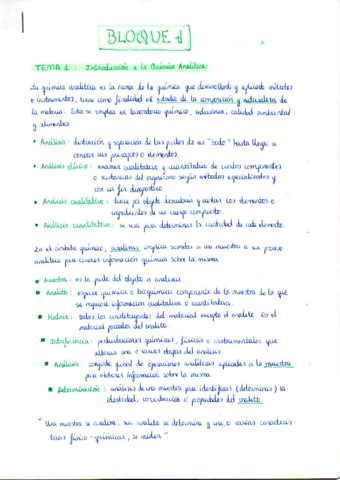 BLOQUE 1
TEMA 1 : Introducción a la Química Analítica
La química analítica es la rama de la química que desarrollando y aplicando métodos
e instrumentos, tiene como finalidad el estudio de la composición y naturaleza de
la materia. Esta se emplea en laboratorio químico, industrias, calidad ambiental
y alimentos
• Análisis : distinción y separación de las partes de un "todo" hasta llegar a
conocer sus principios o elementos.
• Análisis clínico : examen cualitativo y cuantitativo de ciertos componentes
o sustancias del organismo según métodos especializados y
con un fin diagnóstico.
• Análisis cualitativo : tiene por objeto descubrir y aislar los elementos o
ingredientes de un cuerpo compuesto.
• Análisis cuantitativo : se usa para determinar la cantidad de cada elemento
En el ámbito químico, analizar implica someter a una muestra a un proceso
analítico para conocer información química sobre la misma.
▪ Muestra : es la parte del objeto a analizar.
▪ Analito : especie química o bioquímica componente de la muestra de la que
se requiere información cualitativa o cuantitativa.
▪ Matriz : todos los constituyentes del material excepto el analito. Es el
material portador del analito.
▪ Interferencia : perturbaciones químicas, físicas o instrumentales que
alteran una o varias etapas del análisis.
▪ Análisis : conjunto global de operaciones analíticas aplicadas a la muestra
para obtener información sobre la misma.
▪ Determinación : análisis de una muestra para identificar (determinar) la
identidad, concentración o propiedades del analito.
" Una muestra se analiza, un analito se determina y una o varias caracterís-
ticas físico - químicas, se miden "